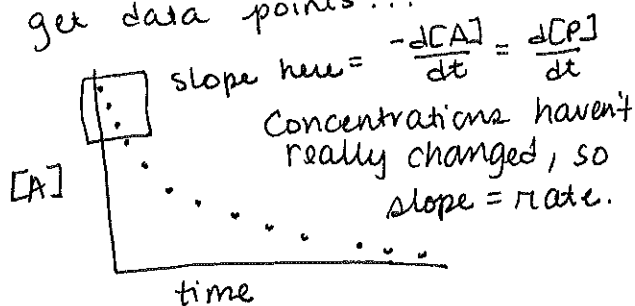 get data points...
slope here = -d[A]/dt = d[P]/dt
Concentrations haven't
really changed, so
slope = rate.
[A]
time